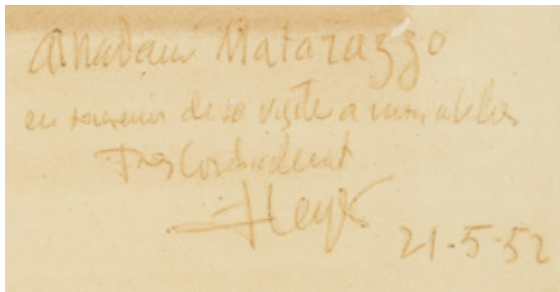 A Madame Matarazzo
en souvenir de sa visite a mon atelier
Tres Cordialement
21-5-52